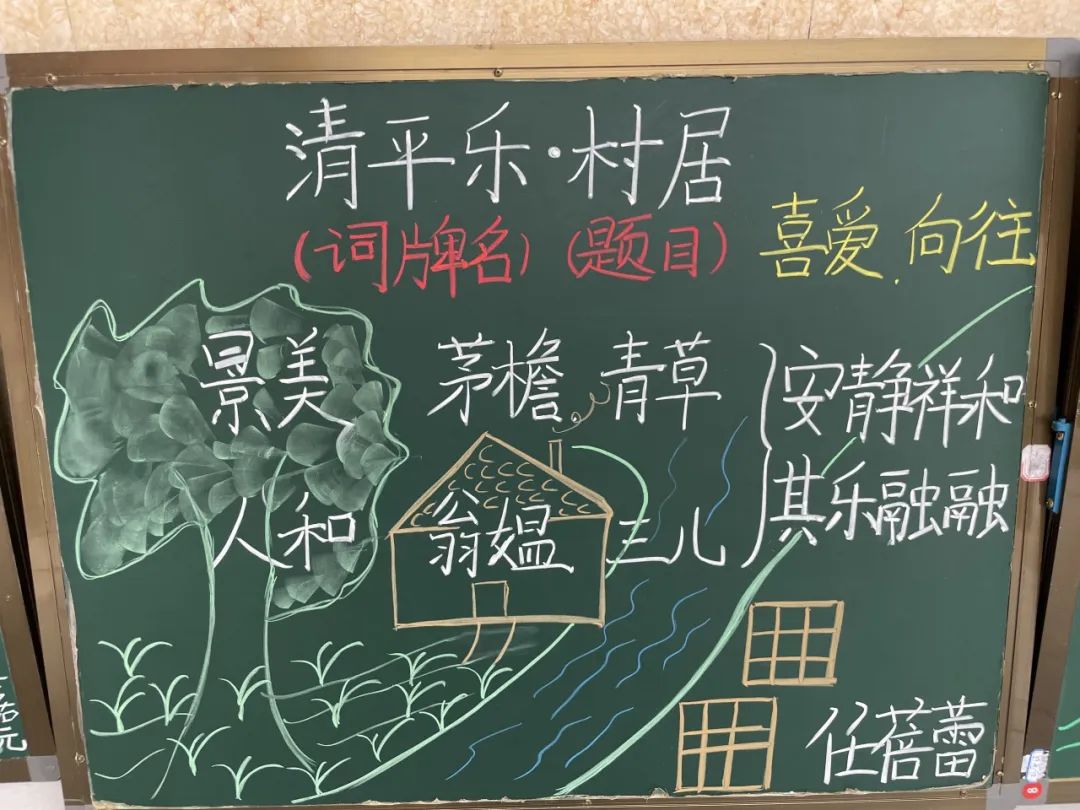 清平乐·村居
(词牌名)(题目) 喜爱、向往
景美 茅檐 青草 安静祥和
人和 翁媪 三儿 其乐融融
任蓓蕾
元
8